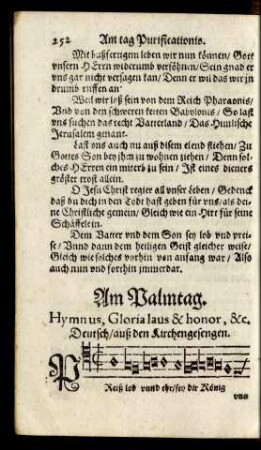 252 Am tag Purificationis.
Mit bußfertigem leben wir nun können/ Gott
vnsern HErren widerumb versöhnen/ Sein gnad er
vns gar nicht versagen kan/ Denn er wil das wir jn
drumb ruffen an
Weil wir loß sein von dem Reich Pharaonis/
Vnd von den schweren ketten Babylonis/ So last
vns suchen das recht Vatterland/ Das Himlische
Jerusalem genant.
Last vns auch nu auß disem elend fliehen/ Zu
Gottes Son bey jhm zu wohnen ziehen/ Denn solches
HErren ein miterb zu sein/ Ist eines dieners
gröster trost allein.
O Jesu Christ regier all vnser leben/ Gedenck
daß du dich in den Todt hast geben für vns/ als deine
Christliche gemein/ Gleich wie ein Hirt für seine
Schäffelein.
Dem Vatter vnd dem Son sey lob vnd preise/
Vnnd dann dem heiligen Geist gleicher weise/
Gleich wie solches vorhin von anfang war/ Also
auch nun vnd forthin jmmerdar.
Am Palmtag.
Hymnus, Gloria laus & honor, &c.
Deutsch/ auß den Kirchengesengen.
Preiß lob vnnd ehr/ sey dir König
vns